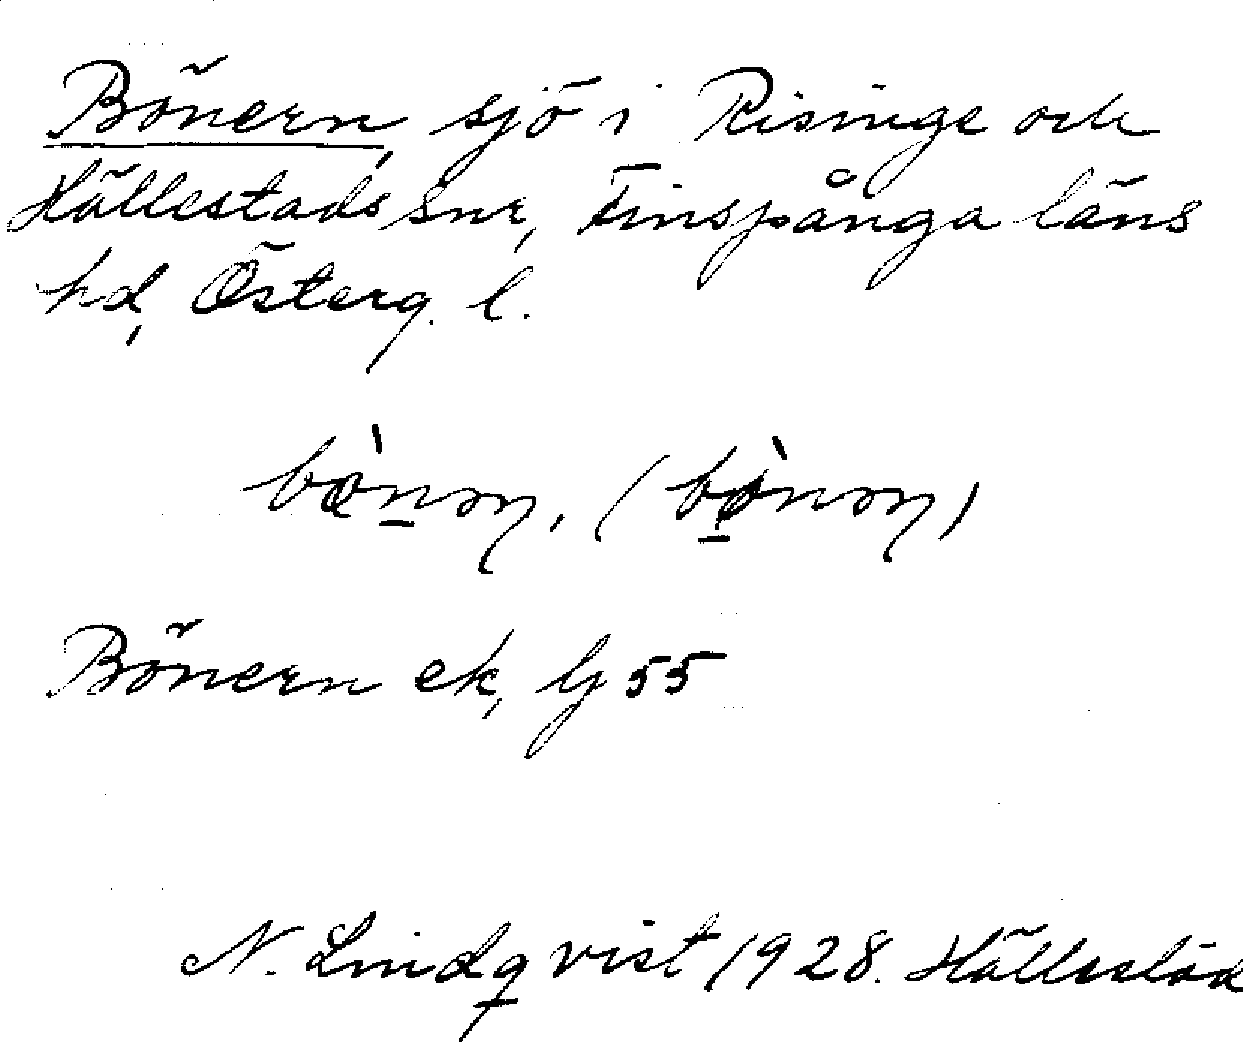 Bönern, sjö i Risinge och
Hällestads snr, Finspånga läns
hd, Österg. l.
Bönern ek, bj 55
N. Lindqvist 1928. Hällestad